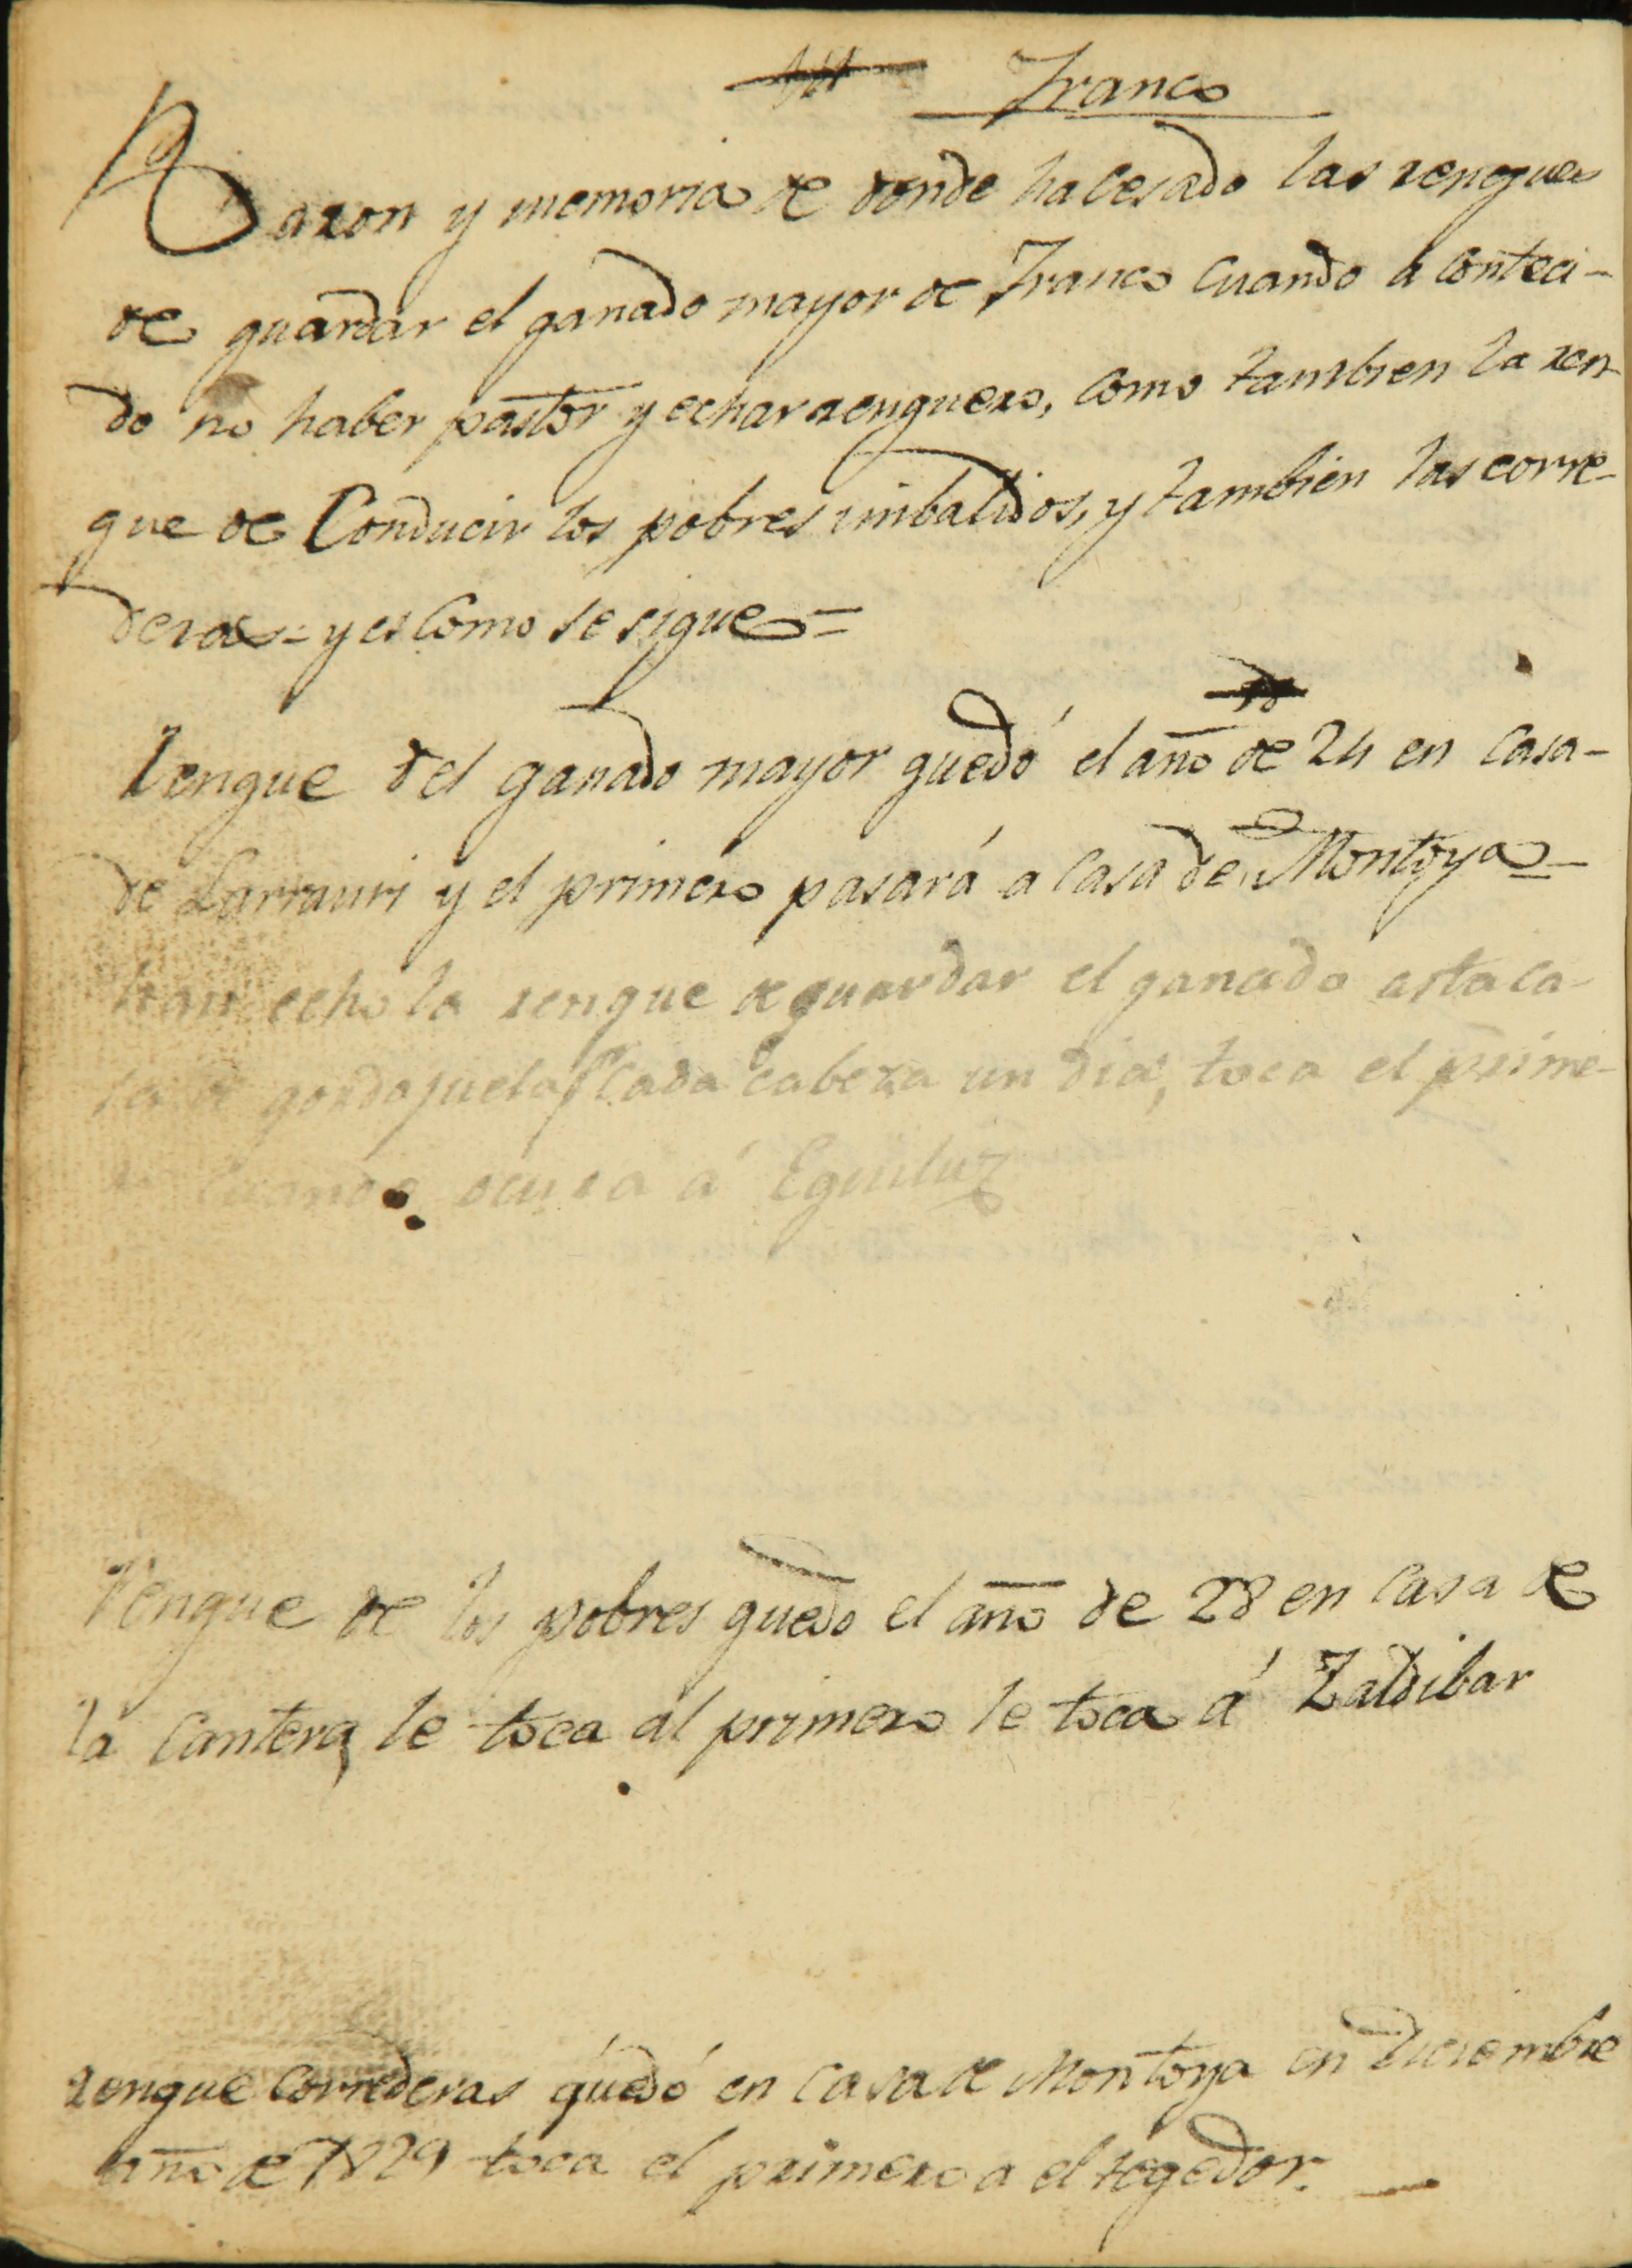 Franco
Razon y memoria de donde ha cesado las rengues
de guardar el ganado mayor de Franco cuando a conteci-
do no haber pastor y echar renguero, como tambien la ren-
gue de Conducir los pobres imbalidos, y tambien las corre-
deras - y es Como se sigue =
Rengue del ganado mayor quedó el año de 24 en casa-
de Larrauri y el primero pasará a casa de Montoya =
han echo la rengue de guardar el ganado asta ca-
sa de gordojuela Cada cabeza un dia, toca el prime-
ro cuando ocurra á Eguiluz
Rengue de los pobres quedo el año de 28 en casa de
la Cantera, le toca al primero le toca á Zaldibar
rengue correderas quedó en casa de Montoya en Diciembre
año de 1829 toca el primero a el tegedor. —